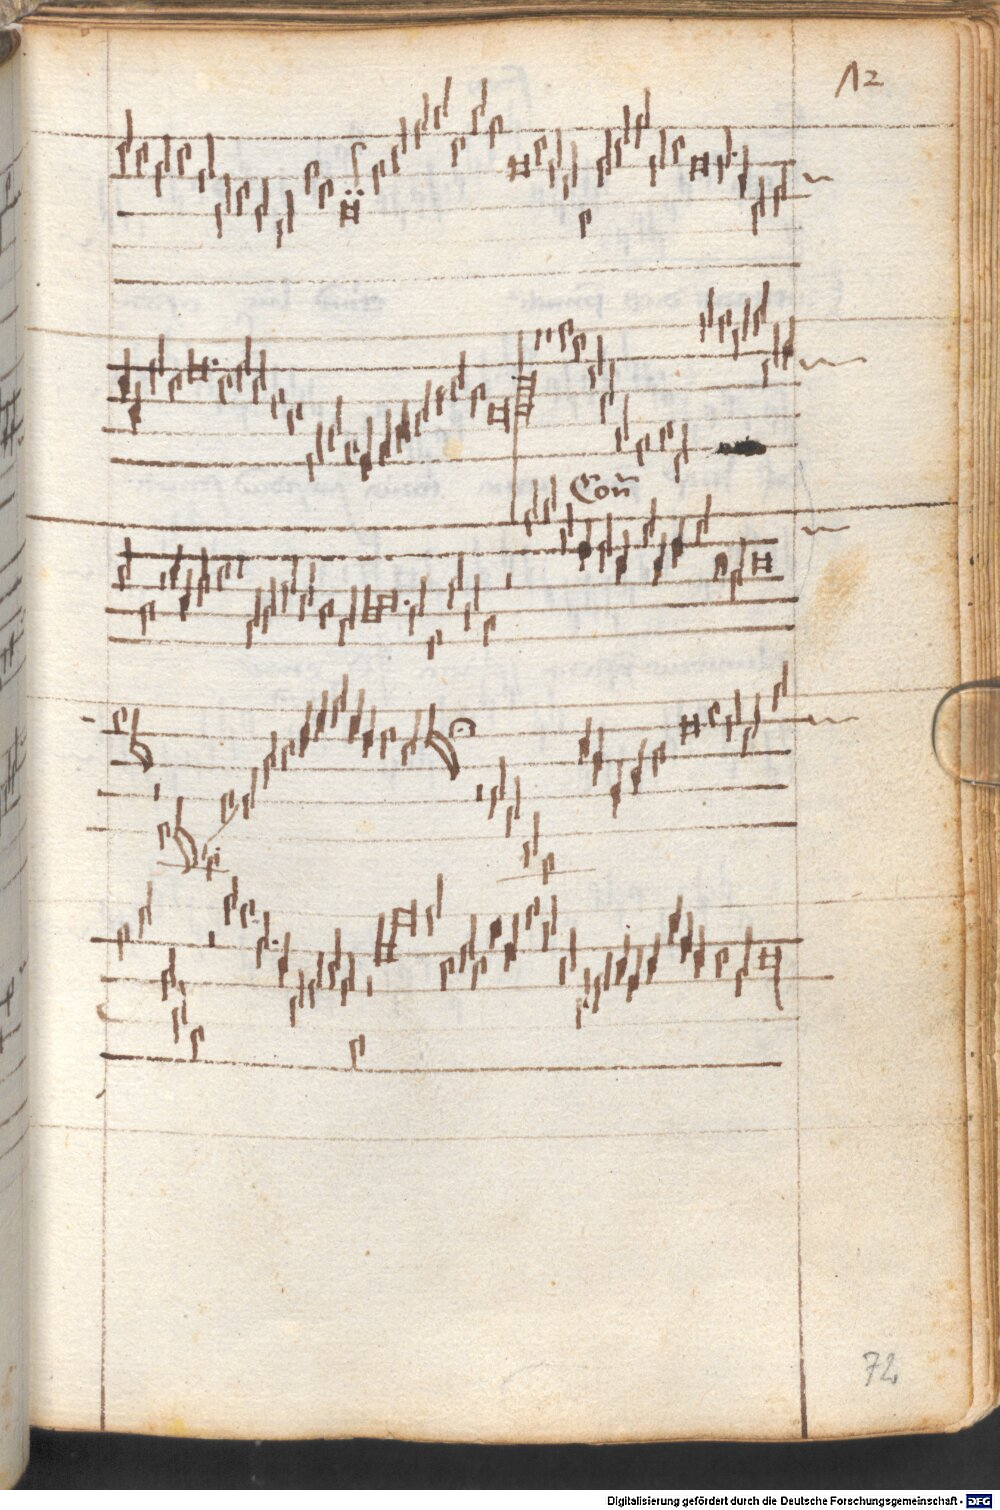 12
Coñ
72
Digitalisierung gefördert durch die Deutsche Forschungsgemeinschaft - DFG